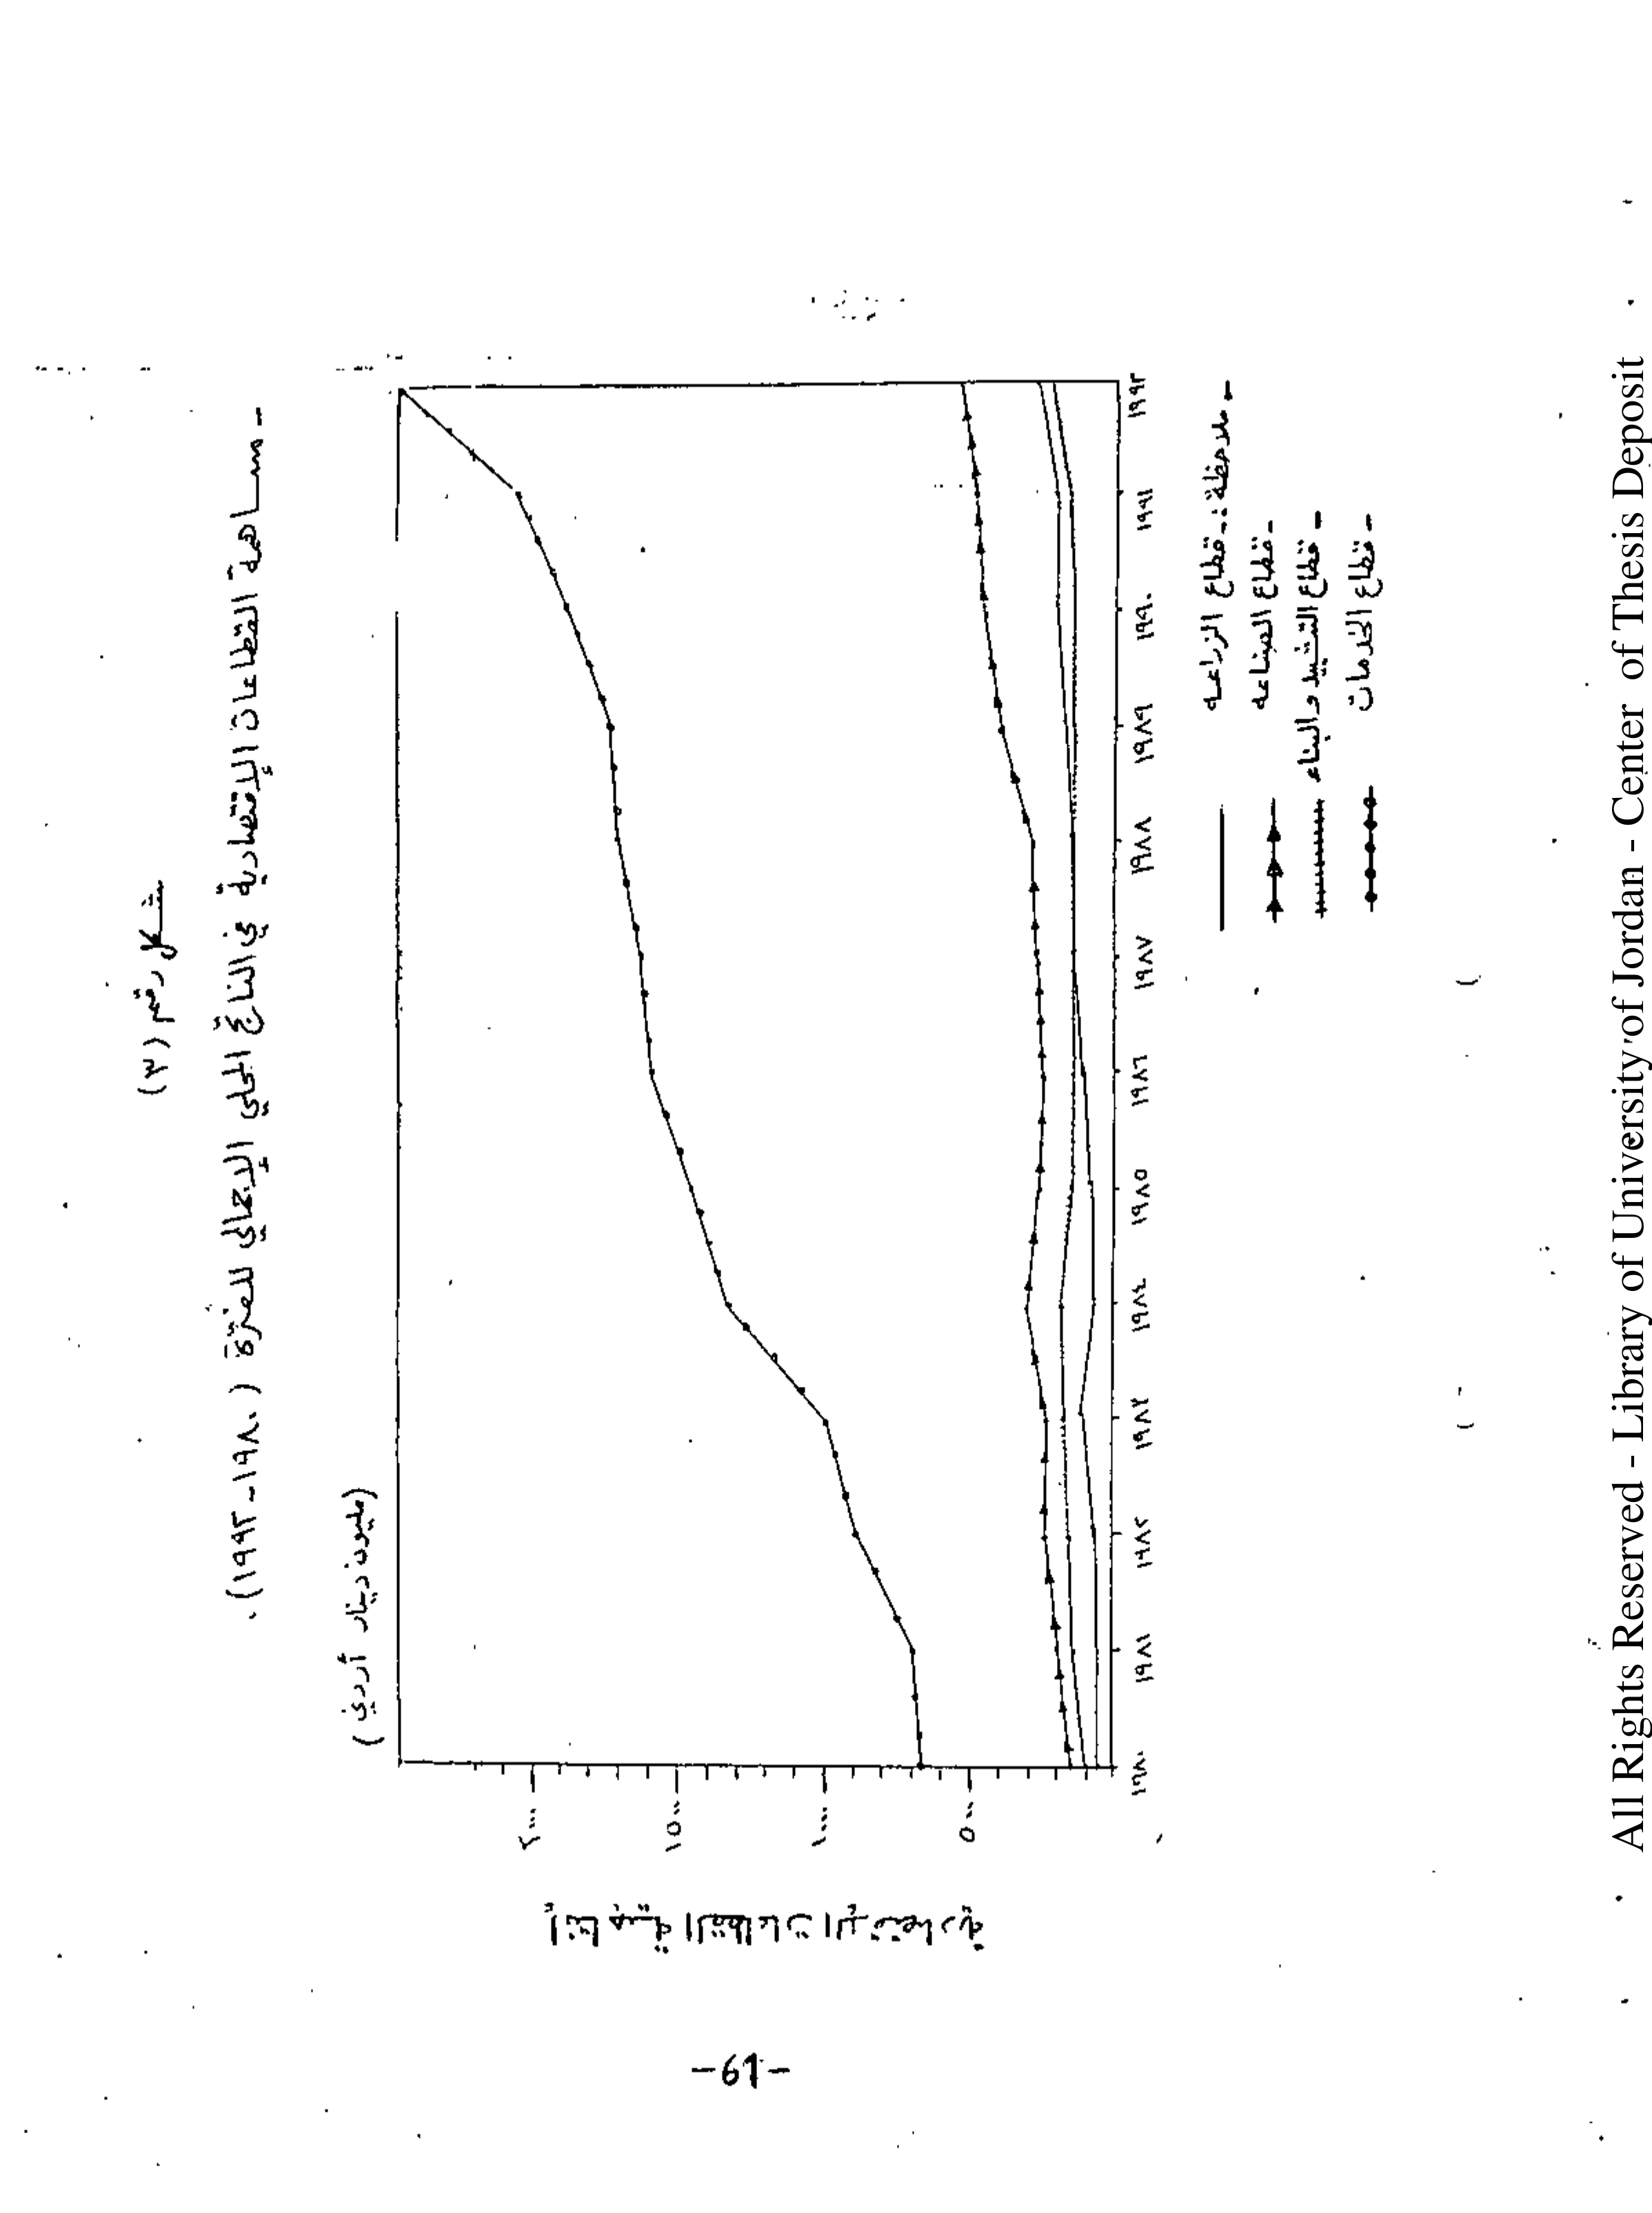 شكل رقم (٣)
- مساهمة القطاعات الإقتصادية في الناتج المحلي الإجمالي للفترة (١٩٨٠-١٩٩٢).
(مليون دينار أردني)
٢٠٠٠
١٥٠٠
١٠٠٠
٥٠٠
إنتاجية القطاعات الإقتصادية
١٩٨٠ ١٩٨١ ١٩٨٢ ١٩٨٣ ١٩٨٤ ١٩٨٥ ١٩٨٦ ١٩٨٧ ١٩٨٨ ١٩٨٩ ١٩٩٠ ١٩٩١ ١٩٩٢
- ملاحظة :- قطاع الزراعه
- قطاع الصناعه
- قطاع التشييد والبناء
- قطاع الخدمات
-61-
All Rights Reserved - Library of University of Jordan - Center of Thesis Deposit